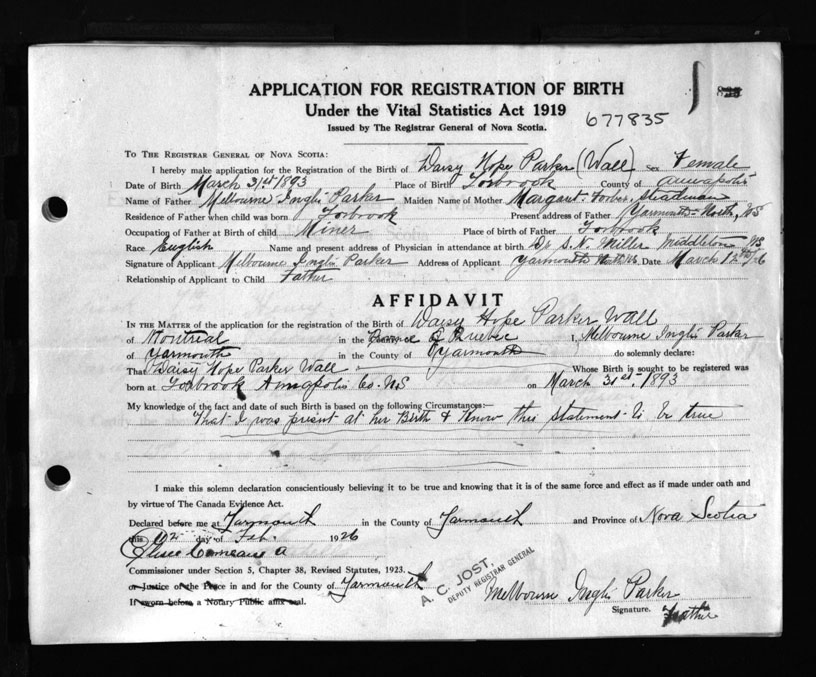 APPLICATION FOR REGISTRATION OF BIRTH
Under the Vital Statistics Act 1919
Issued by The Registrar General of Nova Scotia.
677835
TO THE REGISTRAR GENERAL OF NOVA SCOTIA:
I hereby make application for the Registration of the Birth of Daisy Hope Parker (Wall) Sex Female
Date of Birth March 31st 1893 Place of Birth Torbrook County of Annapolis
Name of Father Melbourne Inglis Parker Maiden Name of Mother Margaret Steadman
Residence of Father when child was born Torbrook Present address of Father Yarmouth North, NS
Occupation of Father at Birth of child Miner Place of birth of Father Torbrook
Race English Name and present address of Physician in attendance at birth Dr S.N. Miller Middleton NS
Signature of Applicant Melbourne Inglis Parker Address of Applicant Yarmouth North NS Date March 12th/26
Relationship of Applicant to Child Father
AFFIDAVIT
IN THE MATTER of the application for the registration of the Birth of Daisy Hope Parker Wall
of Montreal in the Province of Quebec I, Melbourne Inglis Parker
of Yarmouth in the County of Yarmouth do solemnly declare:
That Daisy Hope Parker Wall Whose Birth is sought to be registered was
born at Torbrook Annapolis Co. N.S on March 31st. 1893
My knowledge of the fact and date of such Birth is based on the following Circumstances:
That I was present at her Birth & Know this statement to be true
I make this solemn declaration conscientiously believing it to be true and knowing that it is of the same force and effect as if made under oath and
by virtue of The Canada Evidence Act.
Declared before me at Yarmouth in the County of Yarmouth and Province of Nova Scotia
this 12 day of Feb. 1926
Comeau
Commissioner under Section 5, Chapter 38, Revised Statutes, 1923.
or Justice of the Peace in and for the County of Yarmouth
If sworn before a Notary Public affix seal.
A. C. JOST,
DEPUTY REGISTRAR GENERAL
Melbourn Inglis Parker
Signature. Father